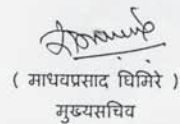 ( माधवप्रसाद घिमिरे )
मुख्यसचिव